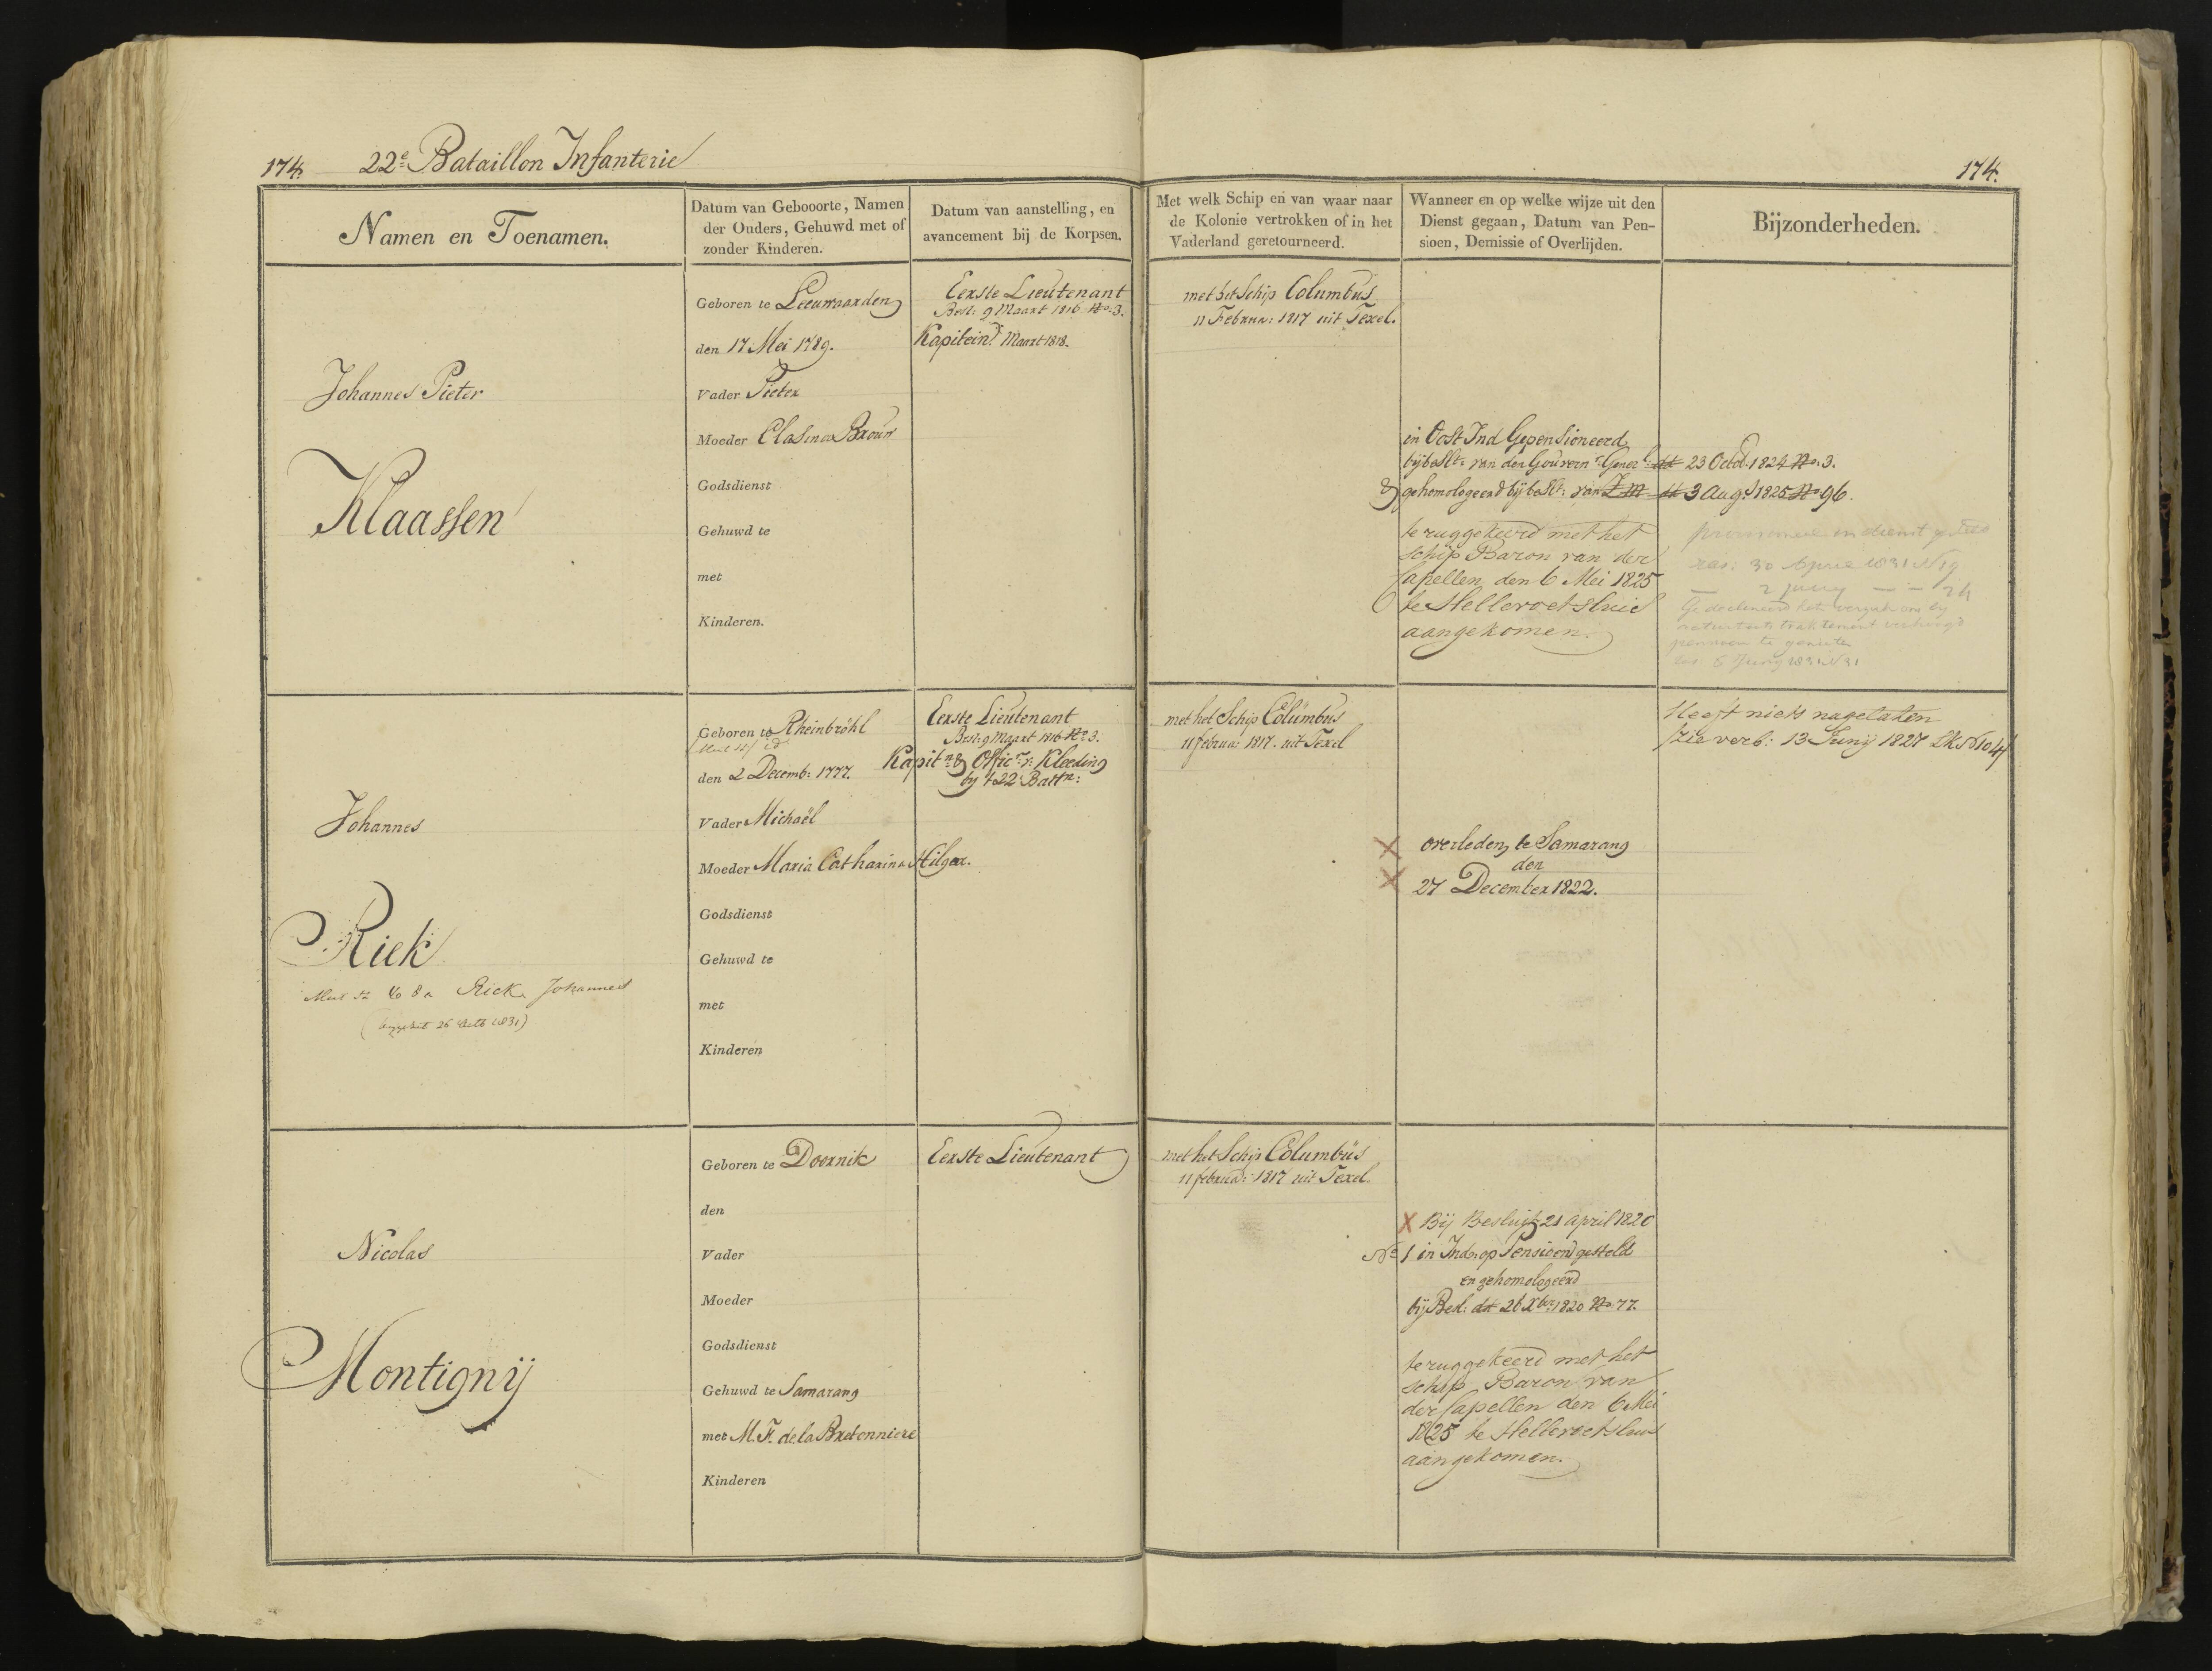 174. 22e Bataillon Infanterie
174.
Namen en Toenamen.
Datum van Gebooorte, Namen
der Ouders, Gehuwd met of
zonder Kinderen.
Datum van aanstelling, en
avancement bij de Korpsen.
Met welk Schip en van waar naar
de Kolonie vertrokken of in het
Vaderland geretourneerd.
Wanneer en op welke wijze uit den
Dienst gegaan, Datum van Pen-
sioen, Demissie of Overlijden.
Bijzonderheden.
Johannes Pieter
Klaassen
Geboren te Leeuwaarden
den 17 Mei 1789.
Vader Pieter
Moeder Clasina Brouw
Godsdienst
Gehuwd te
met
Kinderen.
Eerste Lieutenant
Besl: 9 Maart 1816 No: 3.
Kapitein Maart 1818.
met het Schip Columbus
11 Februa: 1817 uit Texel.
in Oost Ind Gepensioneerd
bij beslt: van den Gouvern r Gener l: dd 23 Octob. 1824 No: 3.
& gehomologeerd bij beslt: van Z M dd 3 Augs 1825 No 96.
teruggekeerd met het
schip Baron van der
Capellen den 6 Mei 1825
te Hellevoetsluis
aangekomen.
in dienst
res: 30 April 1831 N 19
2 Juny - - 24
Gedeclineerd het verzoek om bij
traktement verhoogd
pensioen te genieten
res 6 Juny 1831 N 31
Johannes
Riek
N 8a Rick Johannes
26 1831)
Geboren te Rheinbröhl
id
den 2 Decemb: 1777.
Vader Michaël
Moeder Maria Catharina Hilger.
Godsdienst
Gehuwd te
met
Kinderen
Eerste Lieutenant
Besl: 9 Maart 1816 No 3.
Kapitn & Officr v: Kleeding
bij 't 22 Battn:
met het Schip Columbus
11 februa: 1817. uit Texel
overleden te Samarang
den
27 December 1822.
Heeft niets nagelaten
zie verb: 13 Junij 1827 LK N 104
Nicolas
Montignij
Geboren te Doornik
den
Vader
Moeder
Godsdienst
Gehuwd te Samarang
met M.F. de la Bretonniere
Kinderen
Eerste Lieutenant
met het Schip Columbus
11 februa: 1817 uit Texel.
X Bij Besluijt 21 april 1820
No 1 in Ind: op Pensioen gesteld
en gehomologeerd
bij Besl: dd 26 Xber 1820 No: 77.
teruggekeerd met het
schip Baron van
der Capellen den 6 Mei
1825 te Hellevoetsluis
aangekomen.